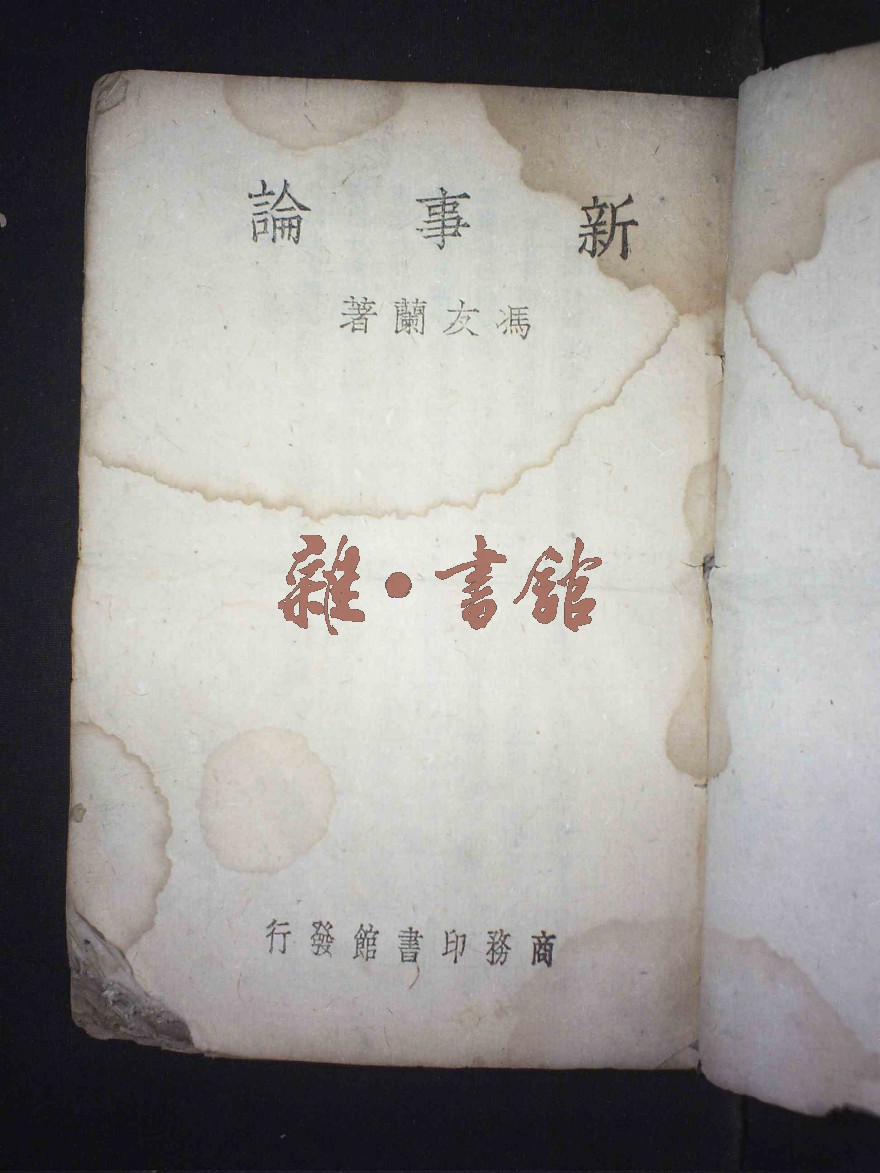 新事論
馮友蘭著
雜·書館
商務印書館發行